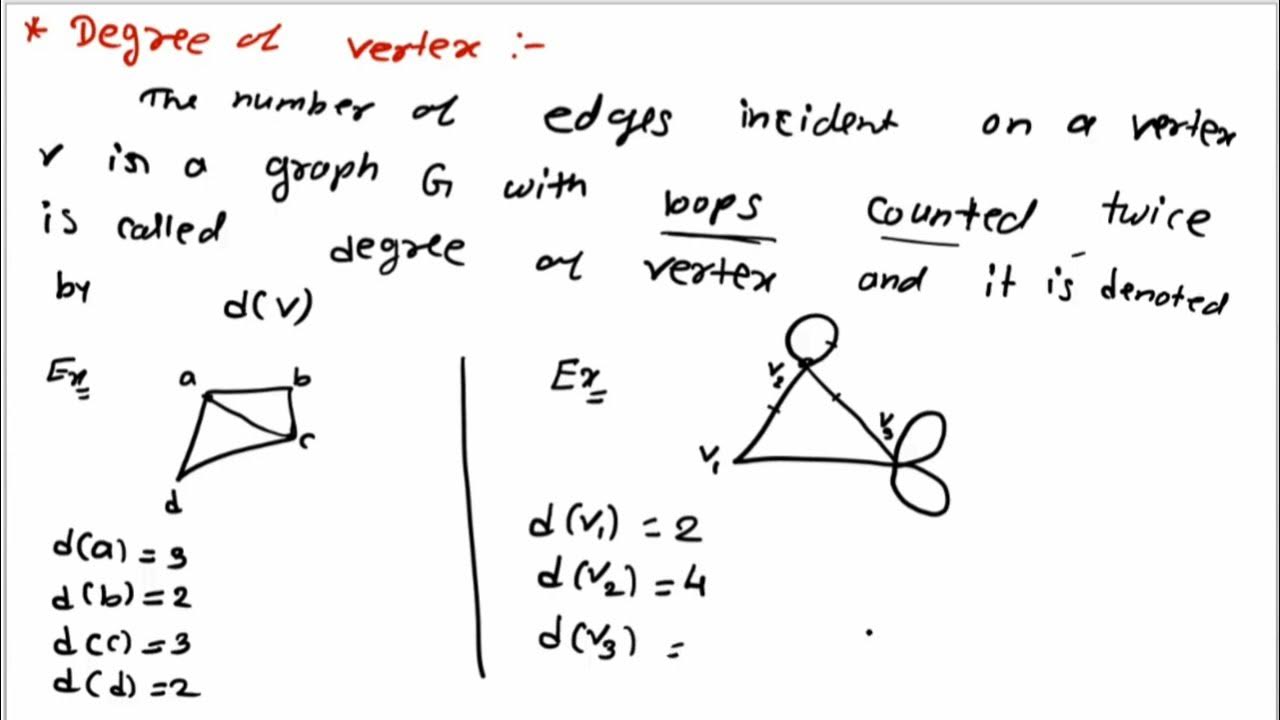 * Degree of vertex :-
The number of edges incident on a vertex
v is a graph G with loops counted twice
is called degree of vertex and it is denoted
by d(v)
Ex
a b
c
d
d(a) = 3
d(b) = 2
d(c) = 3
d(d) = 2
Ex
v2
v3
v1
d(v1) = 2
d(v2) = 4
d(v3) =